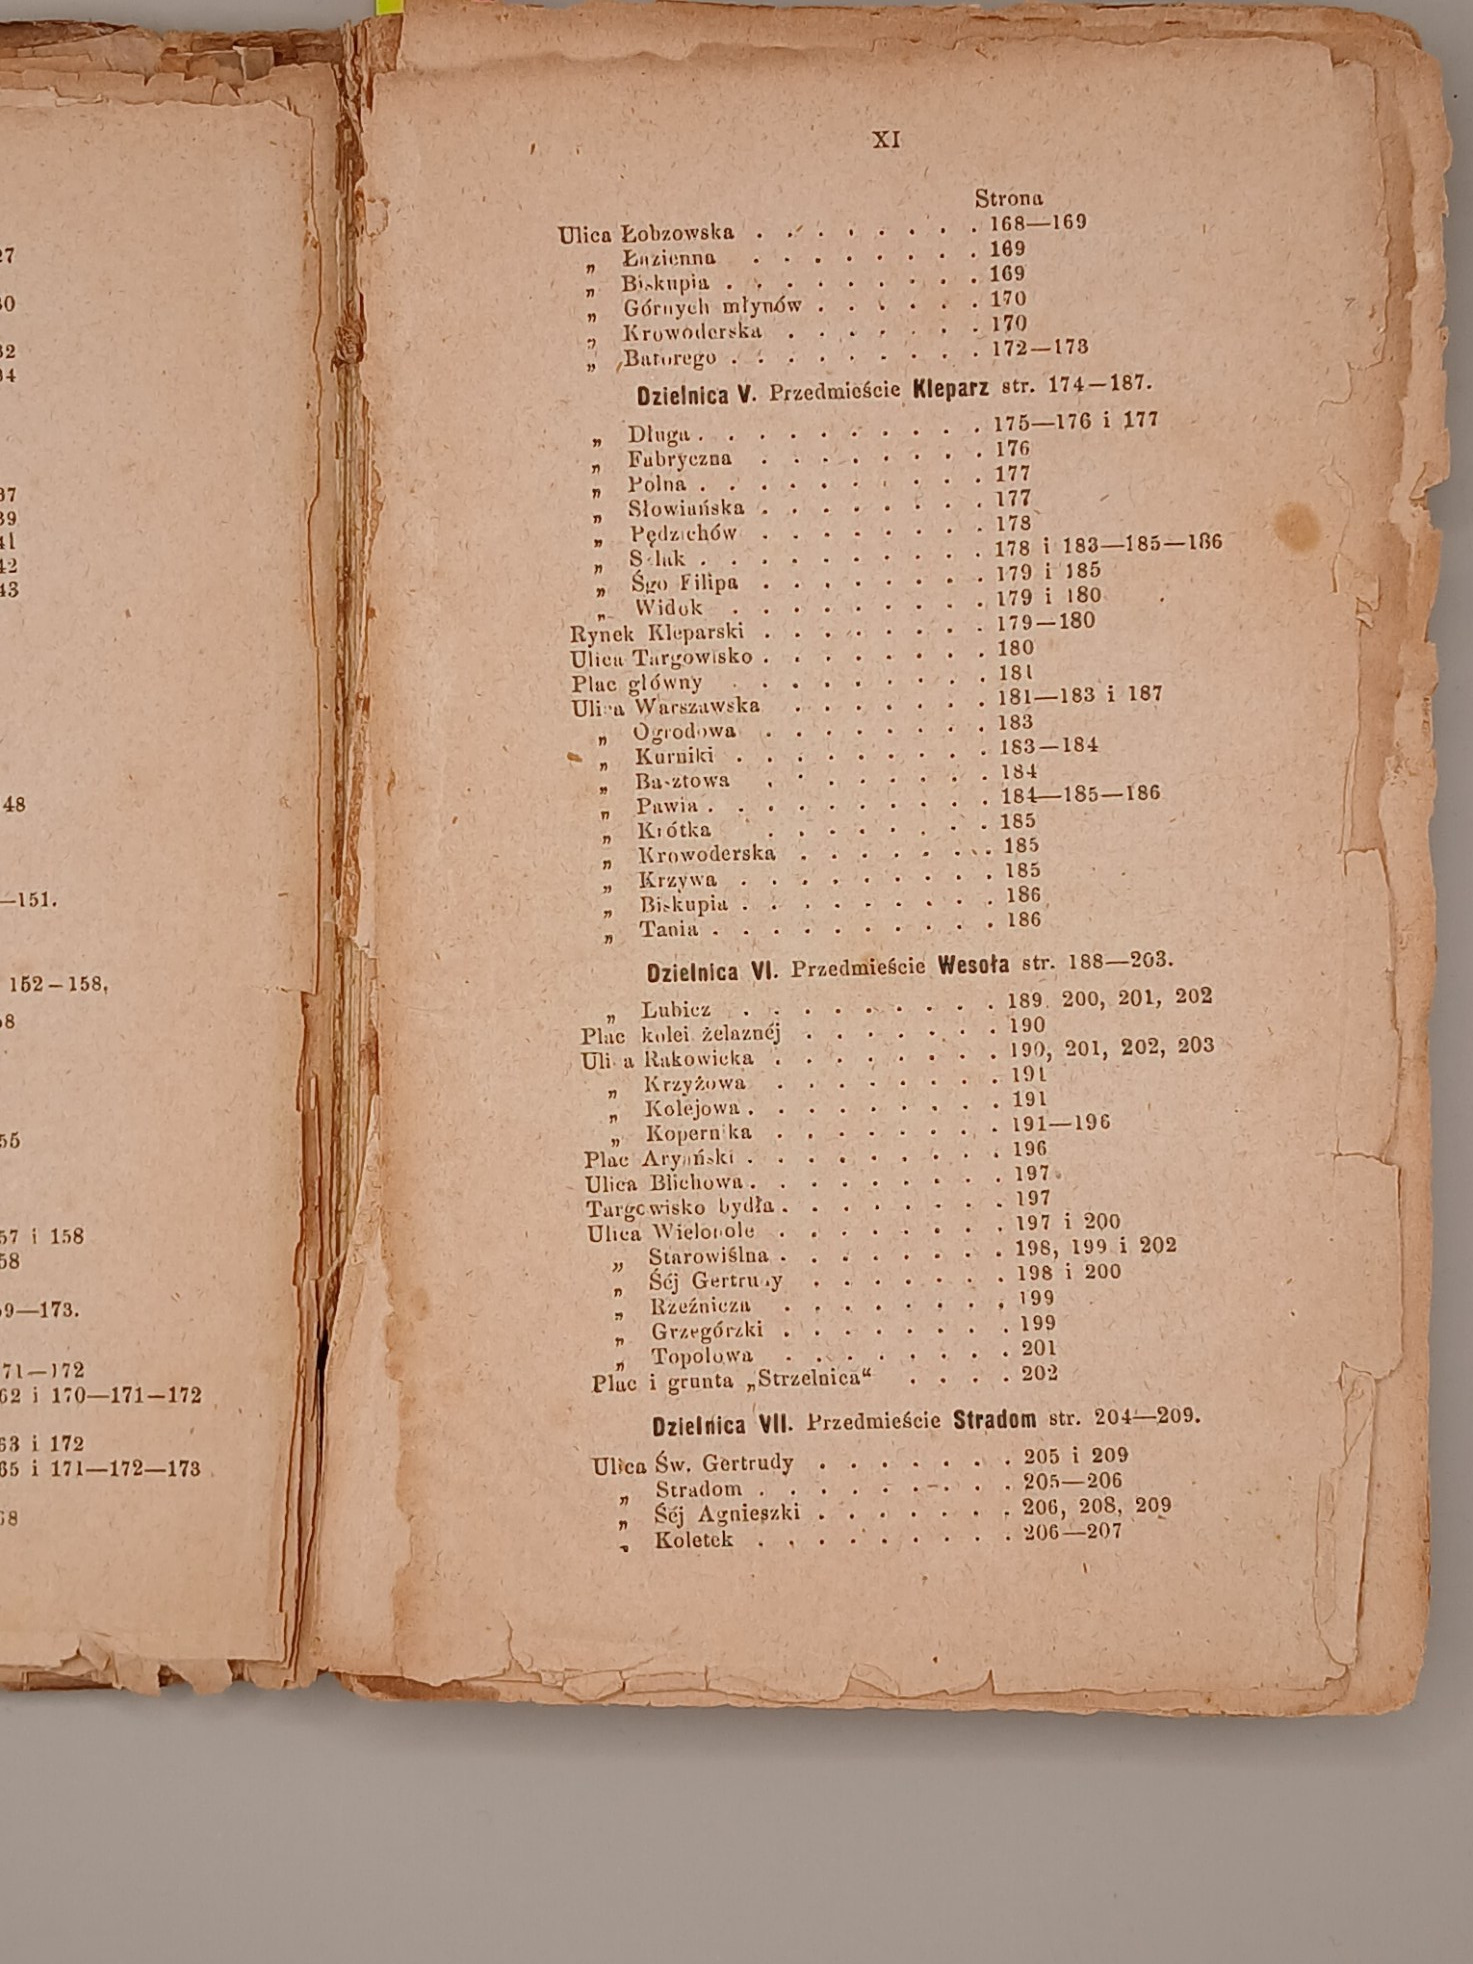 27
30
32
34
37
39
41
42
43
48
—151.
152—158,
58
55
57 i 158
58
59—173.
71—172
62 i 170—171—172
63 i 172
65 i 171—172—173
68
XI
Strona
Ulica Łobzowska . . . . . . . . 168—169
„ Łazienna . . . . . . . . 169
„ Biskupia . . . . . . . . . 169
„ Górnych młynów . . . . . . 170
„ Krowoderska . . . . . . . 170
„ Batorego . . . . . . . . . 172—173
Dzielnica V. Przedmieście Kleparz str. 174—187.
„ Długa . . . . . . . . . . 175—176 i 177
„ Fabryczna . . . . . . . . 176
„ Polna . . . . . . . . . . 177
„ Słowiańska . . . . . . . . 177
„ Pędzichów . . . . . . . . 178
„ Szlak . . . . . . . . . . 178 i 183—185—186
„ Śgo Filipa . . . . . . . . 179 i 185
„ Widok . . . . . . . . . 179 i 180
Rynek Kleparski . . . . . . . . 179—180
Ulica Targowisko . . . . . . . . 180
Plac główny . . . . . . . . . 181
Ulica Warszawska . . . . . . . 181—183 i 187
„ Ogrodowa . . . . . . . . 183
„ Kurniki . . . . . . . . . 183—184
„ Basztowa . . . . . . . . 184
„ Pawia . . . . . . . . . . 184—185—186
„ Krótka . . . . . . . . 185
„ Krowoderska . . . . . . . 185
„ Krzywa . . . . . . . . . 185
„ Biskupia . . . . . . . . . 186
„ Tania . . . . . . . . . . 186
Dzielnica VI. Przedmieście Wesoła str. 188—203.
„ Lubicz . . . . . . . . . 189. 200, 201, 202
Plac kolei żelaznéj . . . . . . . 190
Ulica Rakowicka . . . . . . . . 190, 201, 202, 203
„ Krzyżowa . . . . . . . . 191
„ Kolejowa . . . . . . . . . 191
„ Kopernika . . . . . . . . 191—196
Plac Aryański . . . . . . . . . 196
Ulica Blichowa . . . . . . . . . 197
Targowisko bydła . . . . . . . . 197
Ulica Wielopole . . . . . . . . 197 i 200
„ Starowiślna . . . . . . . . 198, 199 i 202
„ Śéj Gertrudy . . . . . . . 198 i 200
„ Rzeźnicza . . . . . . . . 199
„ Grzegórzki . . . . . . . . 199
„ Topolowa . . . . . . . . 201
Plac i grunta „Strzelnica“ . . . . 202
Dzielnica VII. Przedmieście Stradom str. 204—209.
Ulica Św. Gertrudy . . . . . . . 205 i 209
„ Stradom . . . . . . . . . 205—206
„ Śéj Agnieszki . . . . . . . 206, 208, 209
„ Koletek . . . . . . . . . 206—207